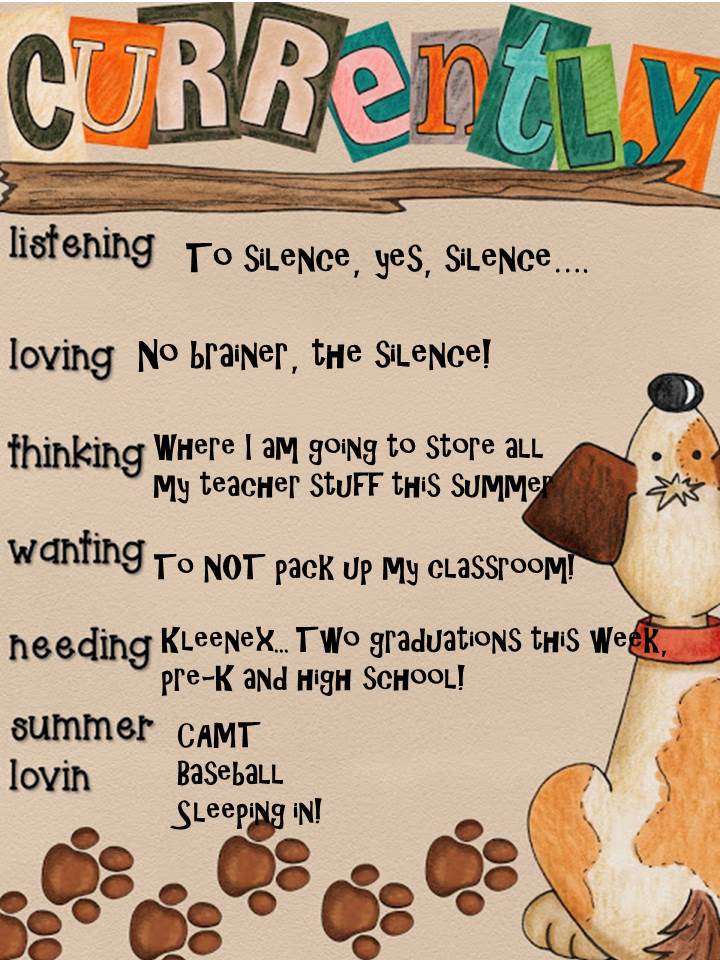 CURRentLy
listening To silence, yes, silence....
loving No brainer, the silence!
thinking Where I am going to store all
my teacher stuff this summer
wanting To NOT pack up my classroom!
needing Kleenex... Two graduations this week,
pre-K and high school!
summer CAMT
lovin Baseball
Sleeping in!